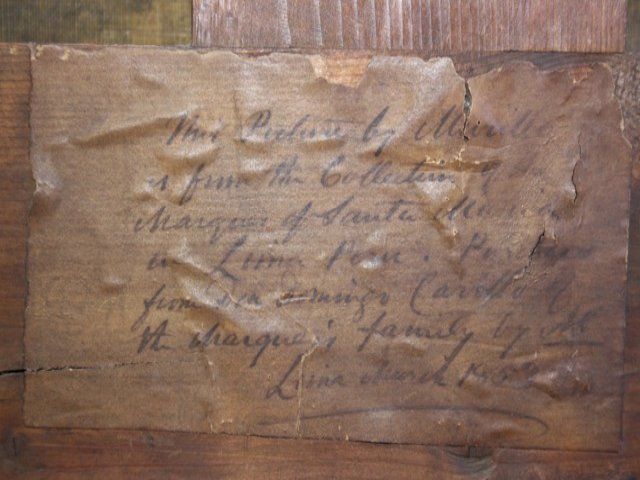 This Picture by Murillo
is from the Collection of the
Marques of Santa Maria
in Lima Peru
from Don Domingo
the Marques's family by
Lima March